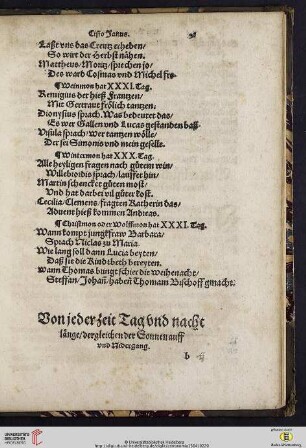 Cisio Janus.
Laßt vns das Creutz erheben/
So wirt der Herbst nåhen.
Mattheus/Moritz/sprechen jo/
Des ward Cosmas vnd Michel fro.
¶Weinmon hat XXXI. Tag.
Remigius der hieß Frantzen/
Mit Gertraut frölich tantzen.
Dionysius sprach. Was bedeut das/
Es wer Gallen vnd Lucas gestanden baß.
Vrsula sprach/wer tantzen wölle/
Der sei Simonis vnd mein geselle.
¶Wintermon hat XXX. Tag.
Alle heyligen fragen nach gůtem win/
Willebroidis sprach/lauffet hin/
Martin schencket gůten most/
Vnd hat darbei vil gůter kost.
Cecilia/Clemens/fragten Katherin das/
Aduent hieß kommen Andreas.
¶Christmon oder Wolffmon hat XXXI. Tag.
Wann kompt jungkfraw Barbara/
Sprach Niclas zu Maria.
Wie lang soll dann Lucia beyten/
Daß sie die Kindtbeth bereyten.
Wann Thomas bringt schier die weihenacht/
Steffan/Johañ/habeñ Thomam Bischoff gmacht.
Von jeder zeit Tag vnd nacht
länge/dergleichen der Sonnen auff
vnd Nidergang.
b
© Universitätsbibliothek Heidelberg